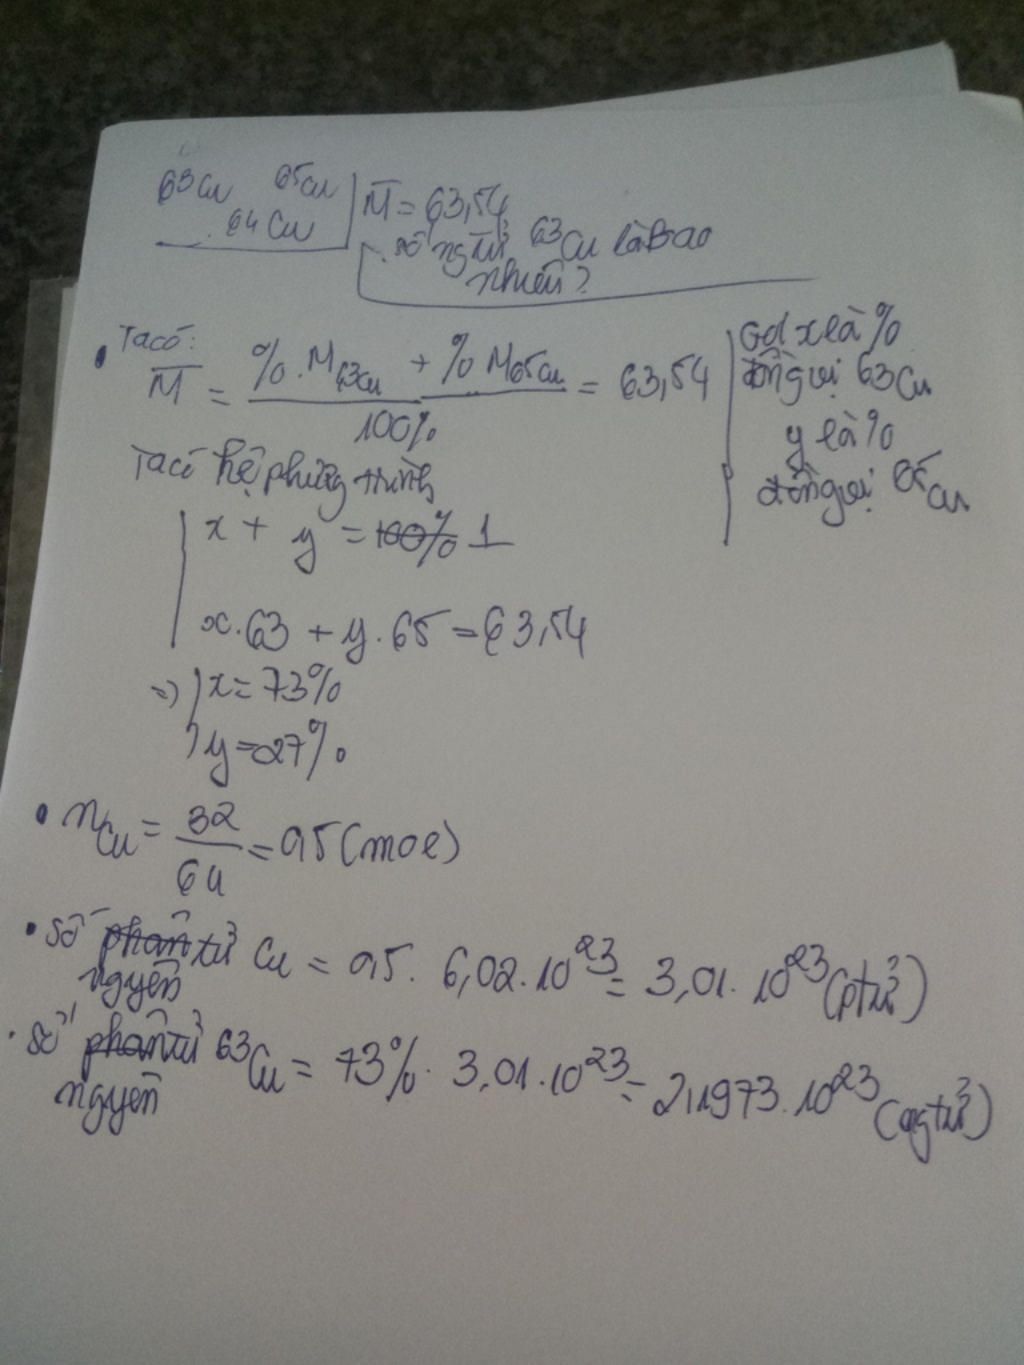 63Cu 65Cu
64Cu
M̅ = 63,54
số ngtử 63Cu là bao
nhiêu?
Ta có:
M̅ = %.M63Cu + %M65Cu / 100% = 63,54
Gọi x là %
đồng vị 63Cu
y là %
đồng vị 65Cu
Ta có hệ phương trình
x + y = 100% 1
x.63 + y.65 = 63,54
=> x = 73%
y = 27%
nCu = 32/64 = 0,5 (mol)
Số phân tử Cu = 0,5. 6,02.10^23 = 3,01.10^23 (ptử)
nguyên
Số phân tử 63Cu = 73%. 3,01.10^23 = 2,1973.10^23 (ngtử)
nguyên